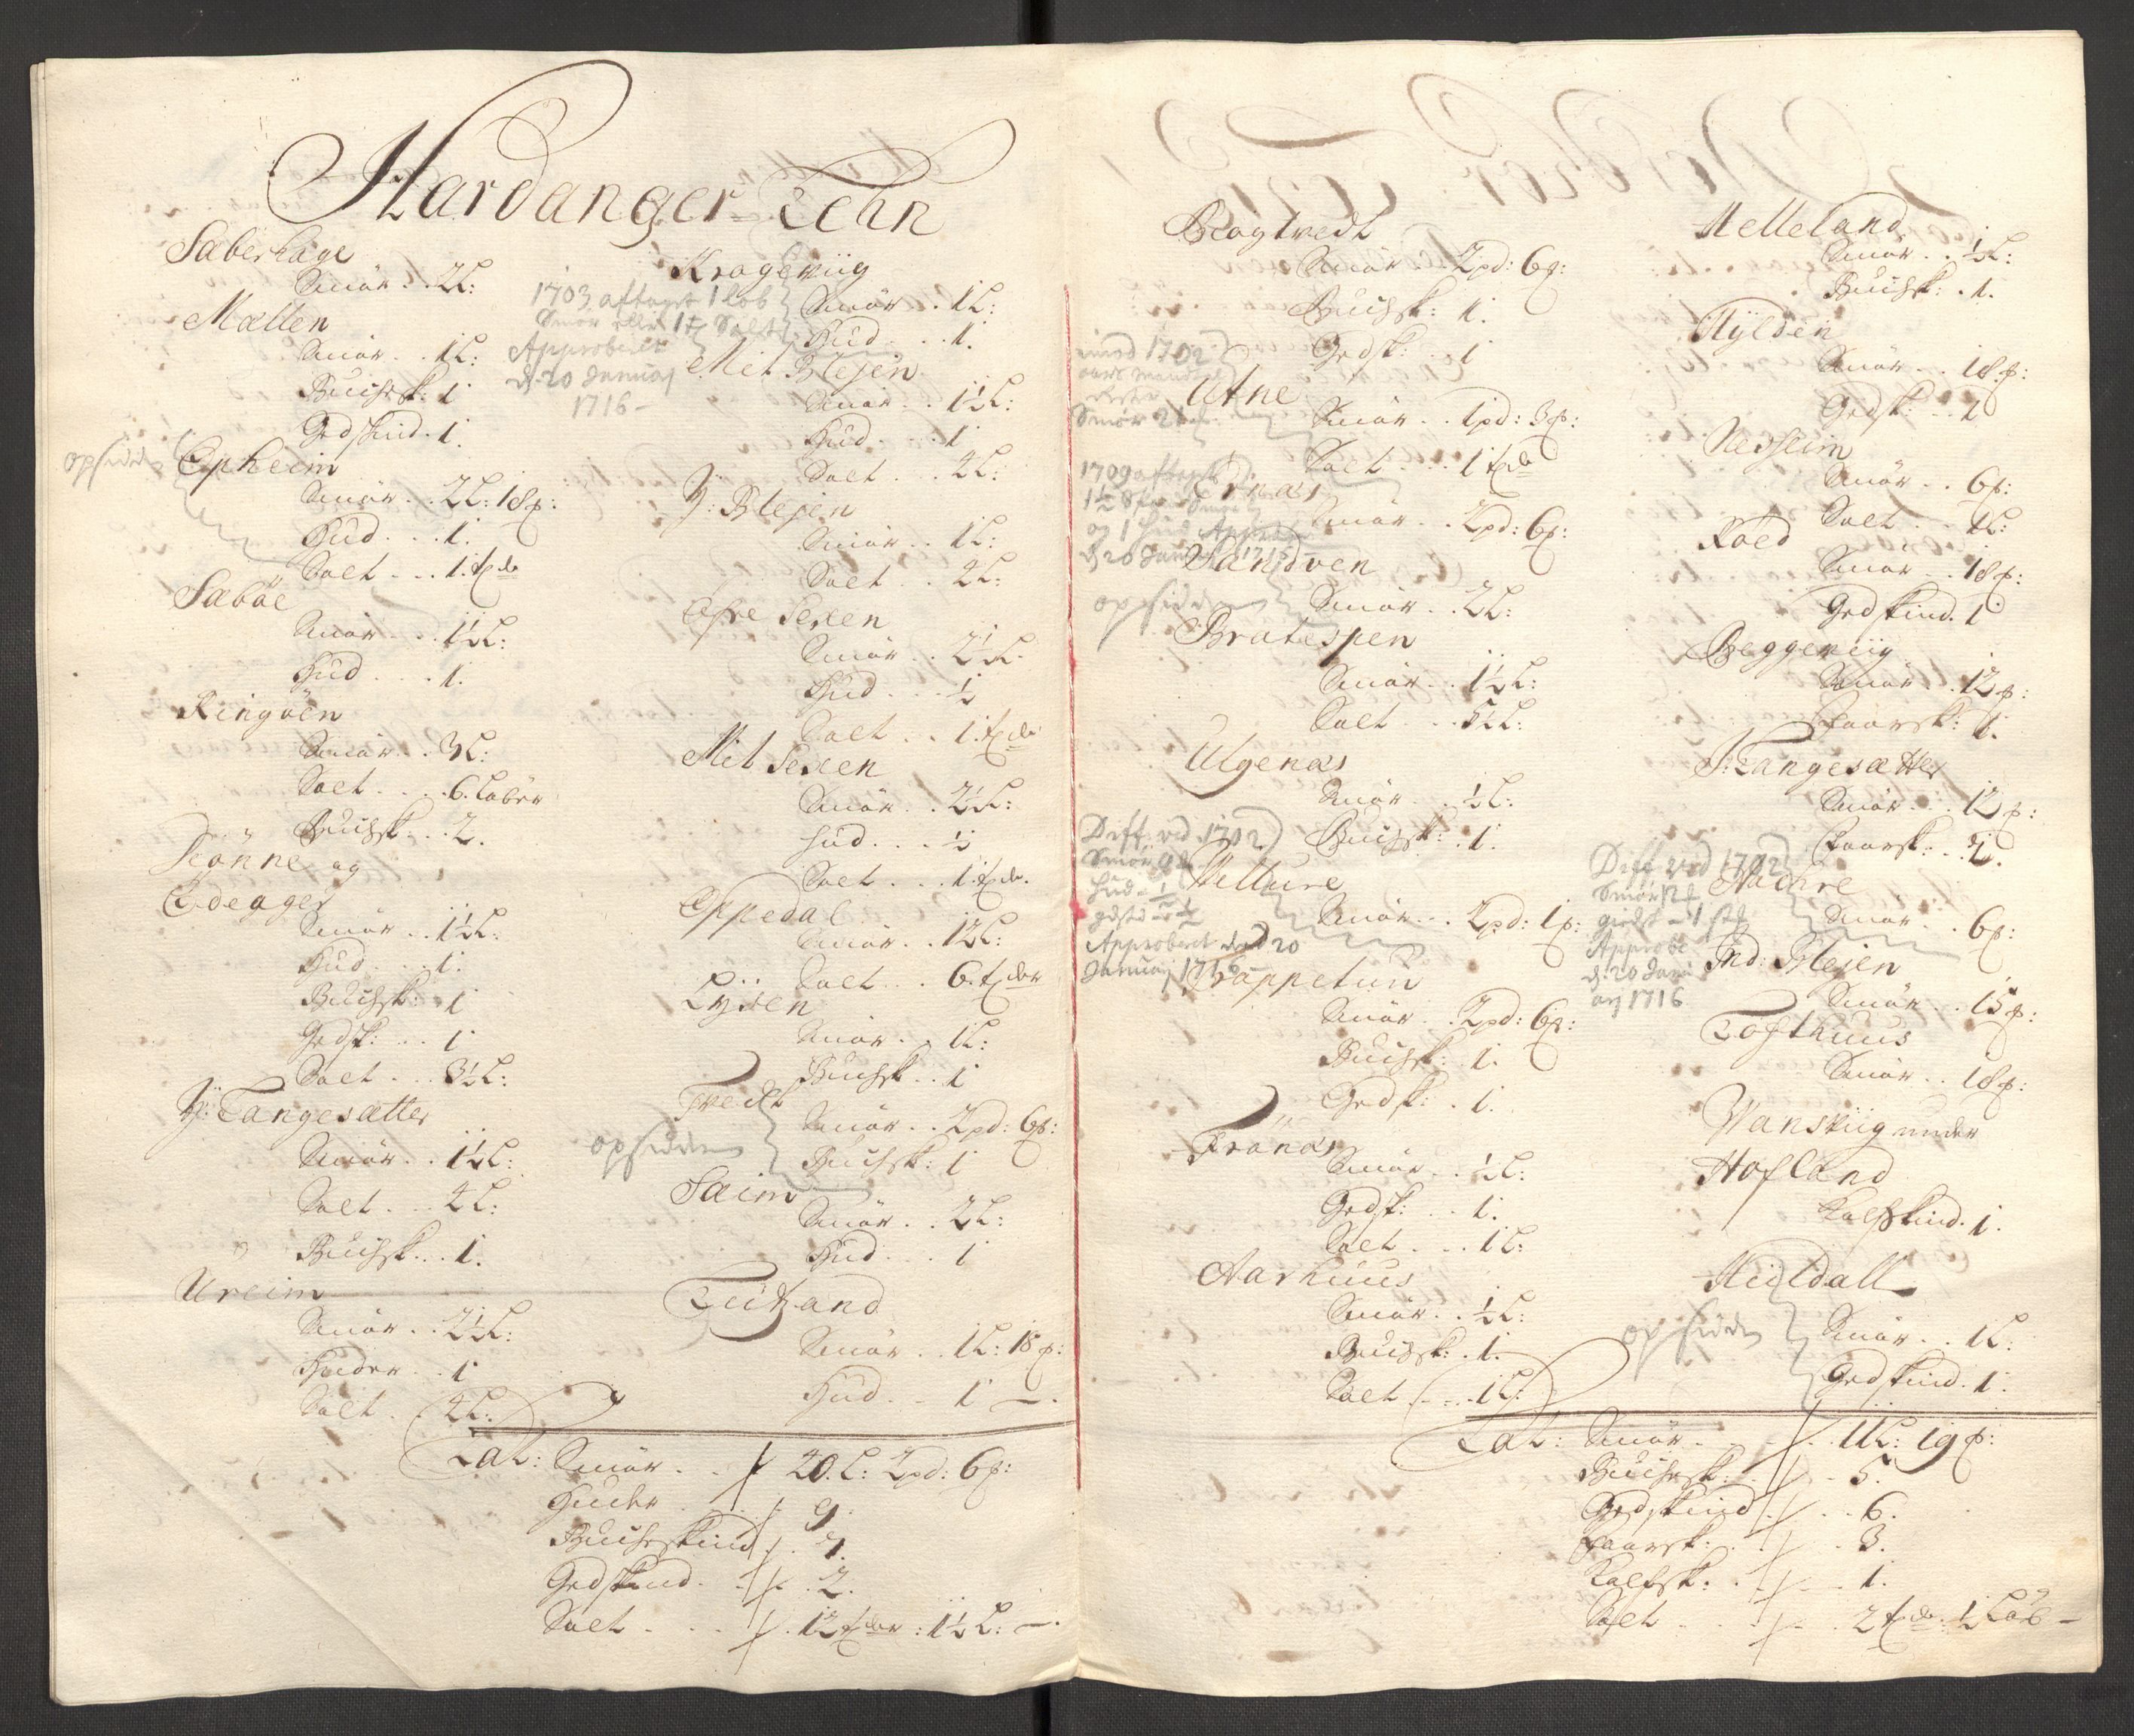 Hardanger Lehn
Saberhage
Smör . . 2 L:
Mælten
Smör . . 1 L:
Buchsk: 1
Gedskind . 1.
opsidd
Epheim
Smör . . 2 L: 18 p:
Hud . . . 1.
Salt - . . 1. tde
Sæböe
Smör . . 1½ L:
Hud . . . 1.
Ringöen
Smör . . 3 L:
Salt . . . 6. Löber
Buchsk . . 2.
og
Edegger
Smör . . 1½ L:
Hud . . . 1.
Buchsk: 1
Gedsk: . . 1
Salt . . . 3½ L:
Y: Tangesætter
Smör . . 1½ L:
Salt . . . 2 L:
Buchsk . . 1.
Ureim
Smör . . 2½ L:
Huder . . 1
Salt . . 2 L:
Krageviig
1703 aftaget 1 løb
Smør eller 1 t Salt
Approberet
d. 20 Januaj
1716 -
Smör . . 1 L:
Hud . . . 1.
Mit Blejen
Smör . . 1½ L:
Hud . . . 1
Salt . . . 2 L:
Y: Blejen
Smör . . 1 L:
Salt . . . 2 L:
Øfre Sexen
Smör . . 2½ L:
Hud . . . ½
Salt . . 1. tde
Mit Sexen
Smör . . 2½ L:
Hud . . . ½
Salt . . . 1. tde.
Eppedal
Smör . . 1½ L:
Salt . . . 6. tder
Lysen
Smör . . 1 L:
Buchsk . . 1
Tvedt
Smör . . 2 pd: 6 p:
opsidden
Buchsk: 1
Saim
Smör . . 2 L:
Hud . . . 1
Smör . . 1 L: 18 p:
Hud . - 1 -.
Lat: Smör . . 20. L: 2 pd: 6 p:
Huder . . . 9.
Buchskind . .
Gedskind . . 2.
Salt . . . 12 tder: 1½ L: -.
Bragtvedt
Smör . . 2 pd: 6 p:
Buchsk: 1.
Gedsk: . 1
imod 1702
Smör 2
Utne
Smör . . 1 pd: 3 p:
Salt . . . 1 tde
1709 aftaget
og 1 hud Approb
d. 20 Janu 1716
Ernæs
Smör . . 2 pd: 6 p:
Sandven
opsidden
Smör . . 2 L:
Bratespen
Smör . . 1½ L:
Salt . . . 5½ L:
Ulgenæs
Smör . . ½ L:
Buchsk: . 1.
Deff. ved 1702
Smör
Hud - ½
Approberet den 20
Januaj 1716 -
Velture
Smör . . 2 pd: 1 p:
Trappetun
Smör . . 2 pd: 6 p:
Buchsk: 1.
Gedsk: . 1.
Frönæs
Smör . . ½ L:
Gedsk: . . 1.
Salt . . . 1 L:
Aarhuus
Smör . . ½ L:
Buchsk: . 1.
Salt . . . 1 L:
Melleland
Smör . . ½ L:
Buchsk: . 1.
Hylden
Smör . . 18 p:
Gedsk: . . 1
Nesheim
Smör . . 6 p:
Salt . . . 1 L:
Röed
Smör . . 18 p:
Gedskind . 1
Beggeviig
Smör . . 12 p:
Faarsk: 1.
J: Tangesætter
Smör . . 12 p:
Faarsk: . 2.
Deff. ved 1702
Smör 12
giedsk - 1 stk
Approbe
d. 20 Janu
arj 1716
Næhre
Smör . . 6 p:
Ind: Blejen
Smör . . 15 p:
Tofthuus
Smör . . 18 p:
Vansviig under
Hofland
Kalfskind . 1.
Midldall
opsidden
Smör . . 1 L:
Gedskind . 1.
Lat: Smör . . . 11 L: 19 p:
Buchsk: . . 5.
Gedskind . . 6.
Faarsk: . . . 3.
Kalfsk: . . . 1.
Salt . . . 2 tde. ½ Löb -